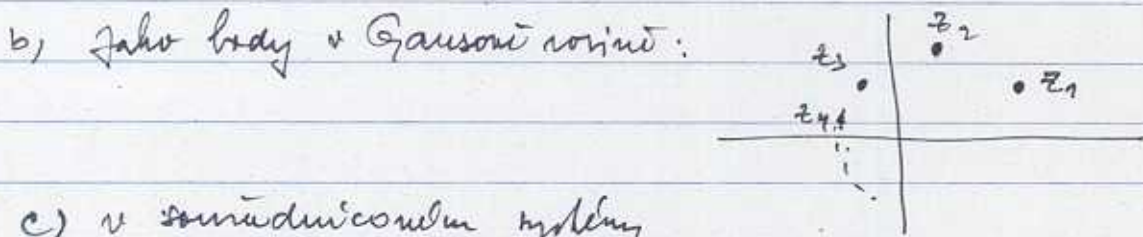 b, Jako body v Gausově rovině:
z₂
z₃
z₁
z₄
c) v souřadnicovém systému